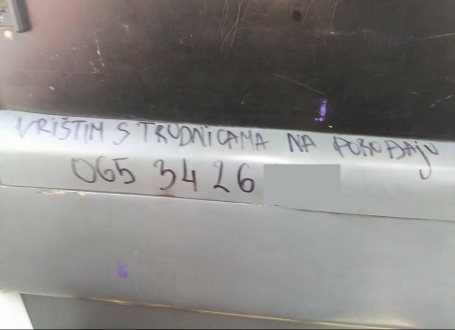 VRIŠTIM S TRUDNICAMA NA POROĐAJU
065 34 26